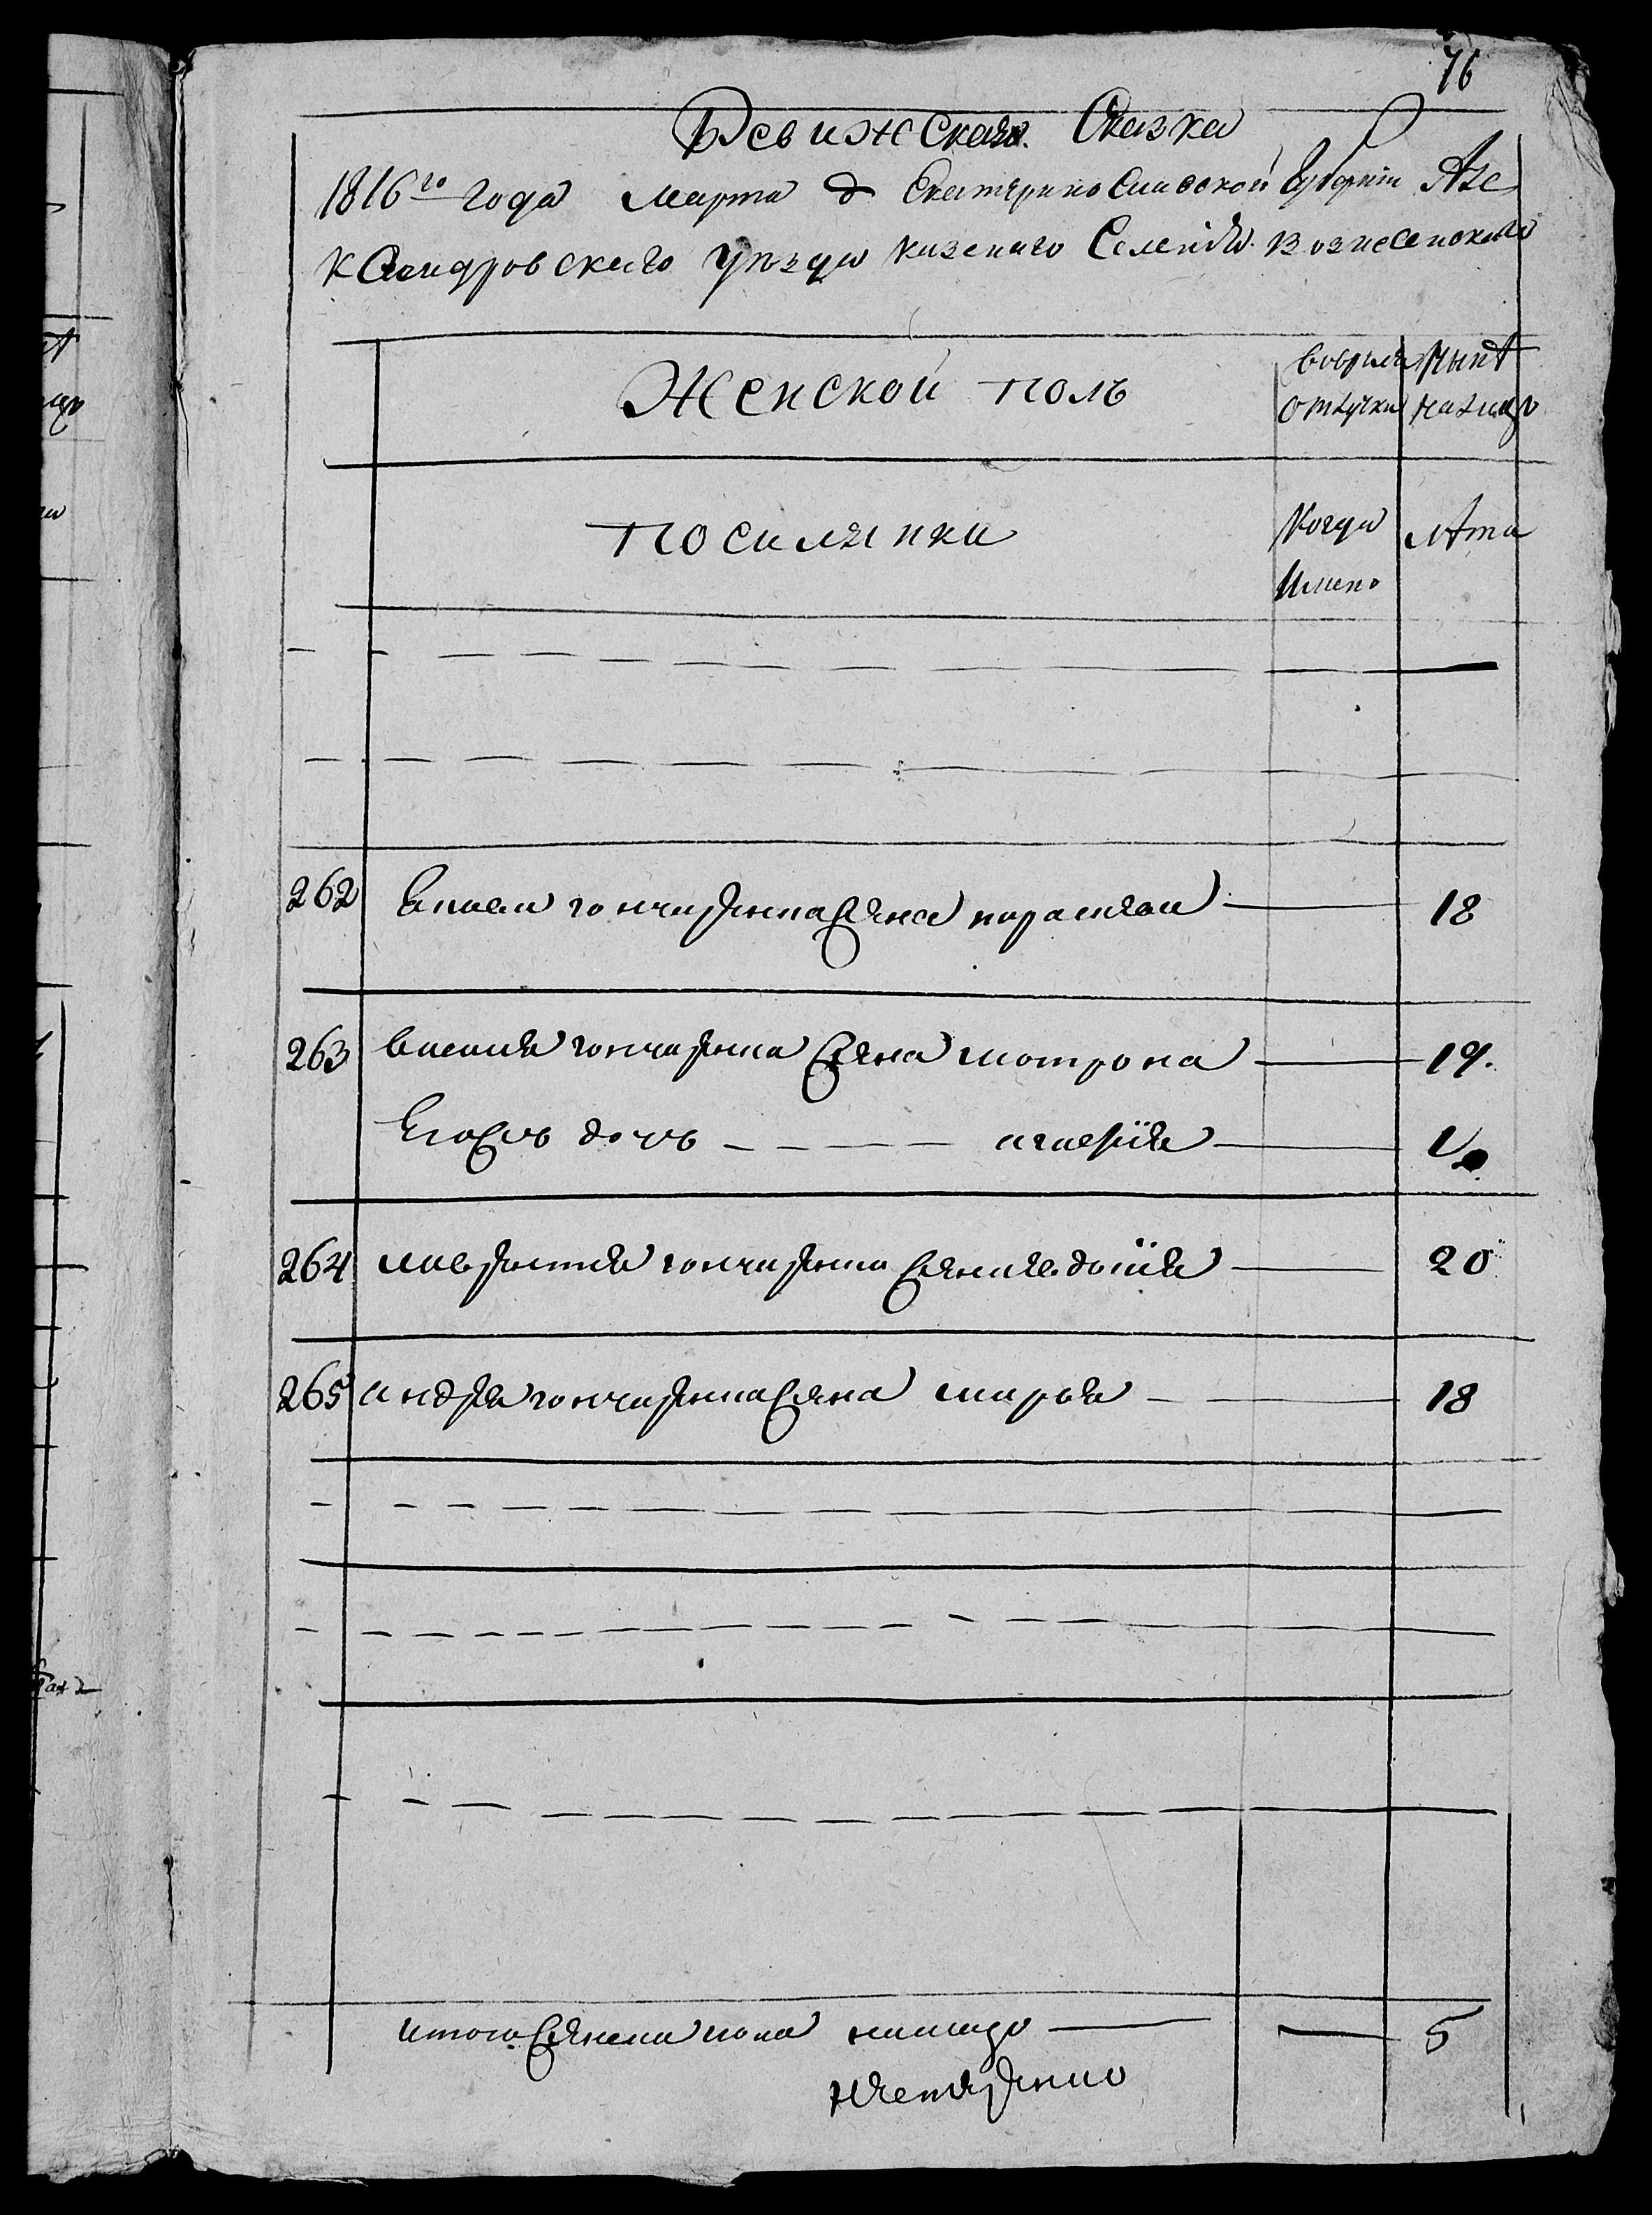 76
Ревижская Сказка
1816го года марта д Екатеринославской Губернии Але
ксандровского уезда казенаго Селения Вознесенского
Женской полъ
вовремя отлучки
ныне налицо
поселянки
Когда Имено
лета
262 гончаренка жена параскева 18
263 василя гончаренка жена мотрона 19.
Егожъ дочъ агафiя
264 лаврентия гончаренка жена евдокiя 20
265 андрея гончаренка жена марья 18
итого женска пола налицо 5